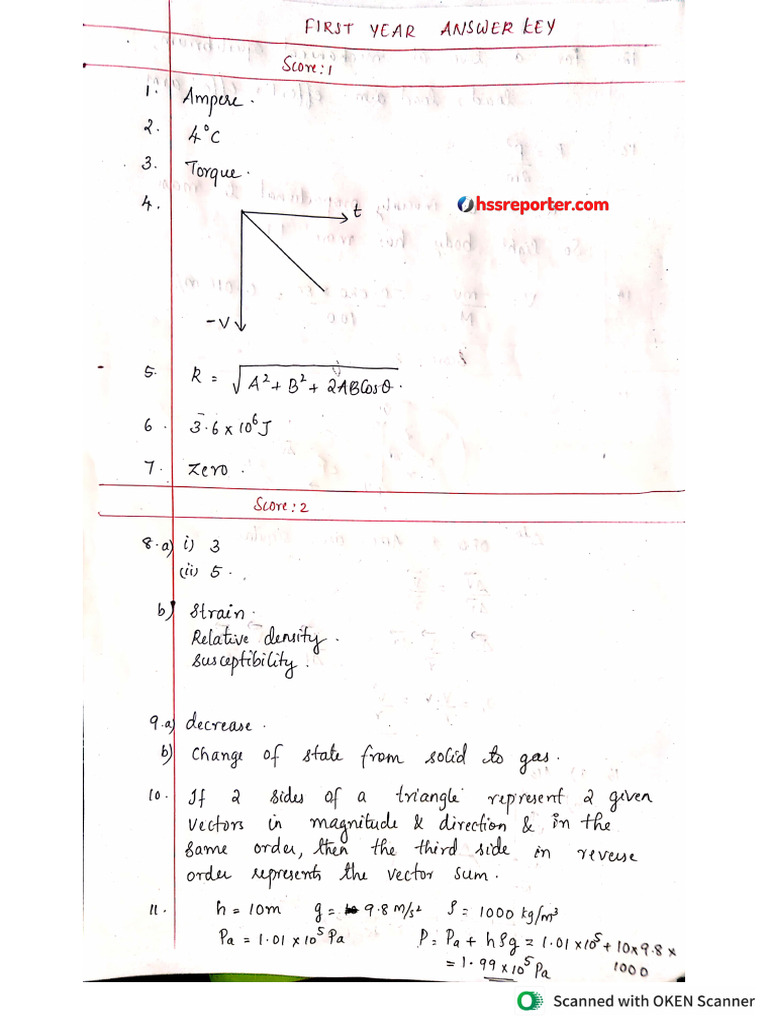 FIRST YEAR ANSWER KEY
Score: 1
1. Ampere.
2. 4°C
3. Torque.
4. t
hssreporter.com
-V
5. R = √A² + B² + 2ABCosθ.
6. 3.6 x 10⁶ J
7. Zero.
Score: 2
8.a) i) 3
(ii) 5.
b) Strain.
Relative density.
Susceptibility.
9.a) decrease.
b) Change of state from solid to gas.
10. If 2 sides of a triangle represent 2 given
vectors in magnitude & direction & in the
same order, then the third side in reverse
order represents the vector sum.
11. h = 10m g = 9.8 m/s² ρ = 1000 kg/m³
Pa = 1.01 x 10⁵ Pa P = Pa + hρg = 1.01 x 10⁵ + 10 x 9.8 x
= 1.99 x 10⁵ Pa 1000
Scanned with OKEN Scanner